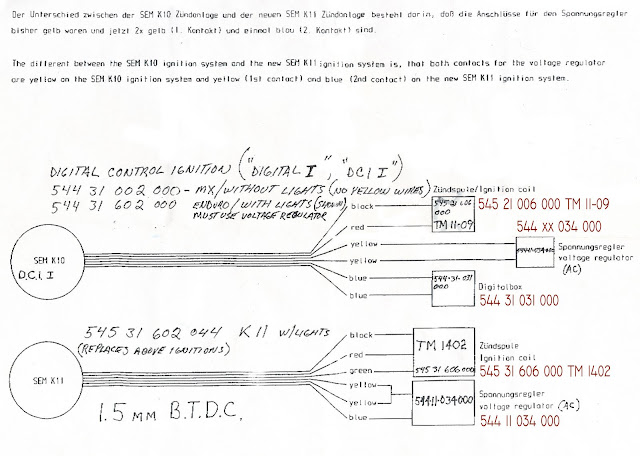 Der Unterschied zwischen der SEM K10 Zündanlage und der neuen SEM K11 Zündanlage besteht darin, daß die Anschlüsse für den Spannungsregler
bisher gelb waren und jetzt 2x gelb (1. Kontakt) und einmal blau (2. Kontakt) sind.
The different between the SEM K10 ignition system and the new SEM K11 ignition system is, that both contacts for the voltage regulator
are yellow on the SEM K10 ignition system and yellow (1st contact) and blue (2nd contact) on the new SEM K11 ignition system.
DIGITAL CONTROL IGNITION ("DIGITAL I", "DCI I")
544 31 002 000 - MX/WITHOUT LIGHTS (NO YELLOW WIRES)
544 31 602 000 ENDURO/WITH LIGHTS (SHOWN)
MUST USE VOLTAGE REGULATOR
Zündspule/Ignition coil
black
545 21 006
000
TM 11-09
545 21 006 000 TM 11-09
red
544 xx 034 000
yellow
yellow
Spannungsregler
voltage regulator
(AC)
SEM K10
D.C.I. I
blue
blue
544-31-031
000
Digitalbox
544 31 031 000
545 31 602 044 K11 W/LIGHTS
(REPLACES ABOVE IGNITIONS)
black
red
green
TM 1402
545 31 606 000
Zündspule
Ignition coil
545 31 606 000 TM 1402
SEM K11
yellow
yellow
blue
544-11-034 000
Spannungsregler
voltage regulator (AC)
544 11 034 000
1.5 MM B.T.D.C.